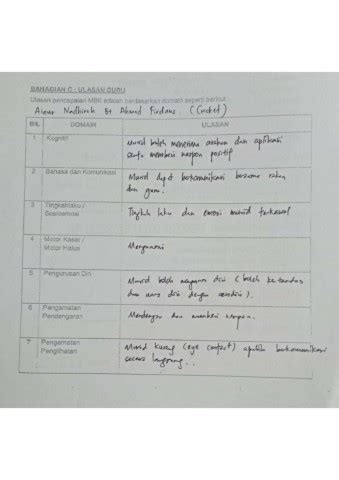 BAHAGIAN C : ULASAN GURU
Ulasan pencapaian MBK adalah berdasarkan domain seperti berikut
Nadhirah Bt Ahmad Firdaus
BIL DOMAIN ULASAN
1 Kognitif Murid boleh menerima arahan dan aplikasi
serta memberi respon positif
2 Bahasa dan Komunikasi Murid dapat berkomunikasi bersama rakan
dan guru.
3 Tingkahlaku / Tingkah laku dan emosi murid terkawal
Sosioemosi
4 Motor Kasar /
Motor Halus
5 Pengurusan Diri Murid boleh mengurus diri (boleh ke tandas
dan urus diri dengan sendiri).
6 Pengamatan Mendengar dan memberi respon.
Pendengaran
7 Pengamatan Murid kurang (eye contact) apabila berkomunikasi
Penglihatan secara langsung...